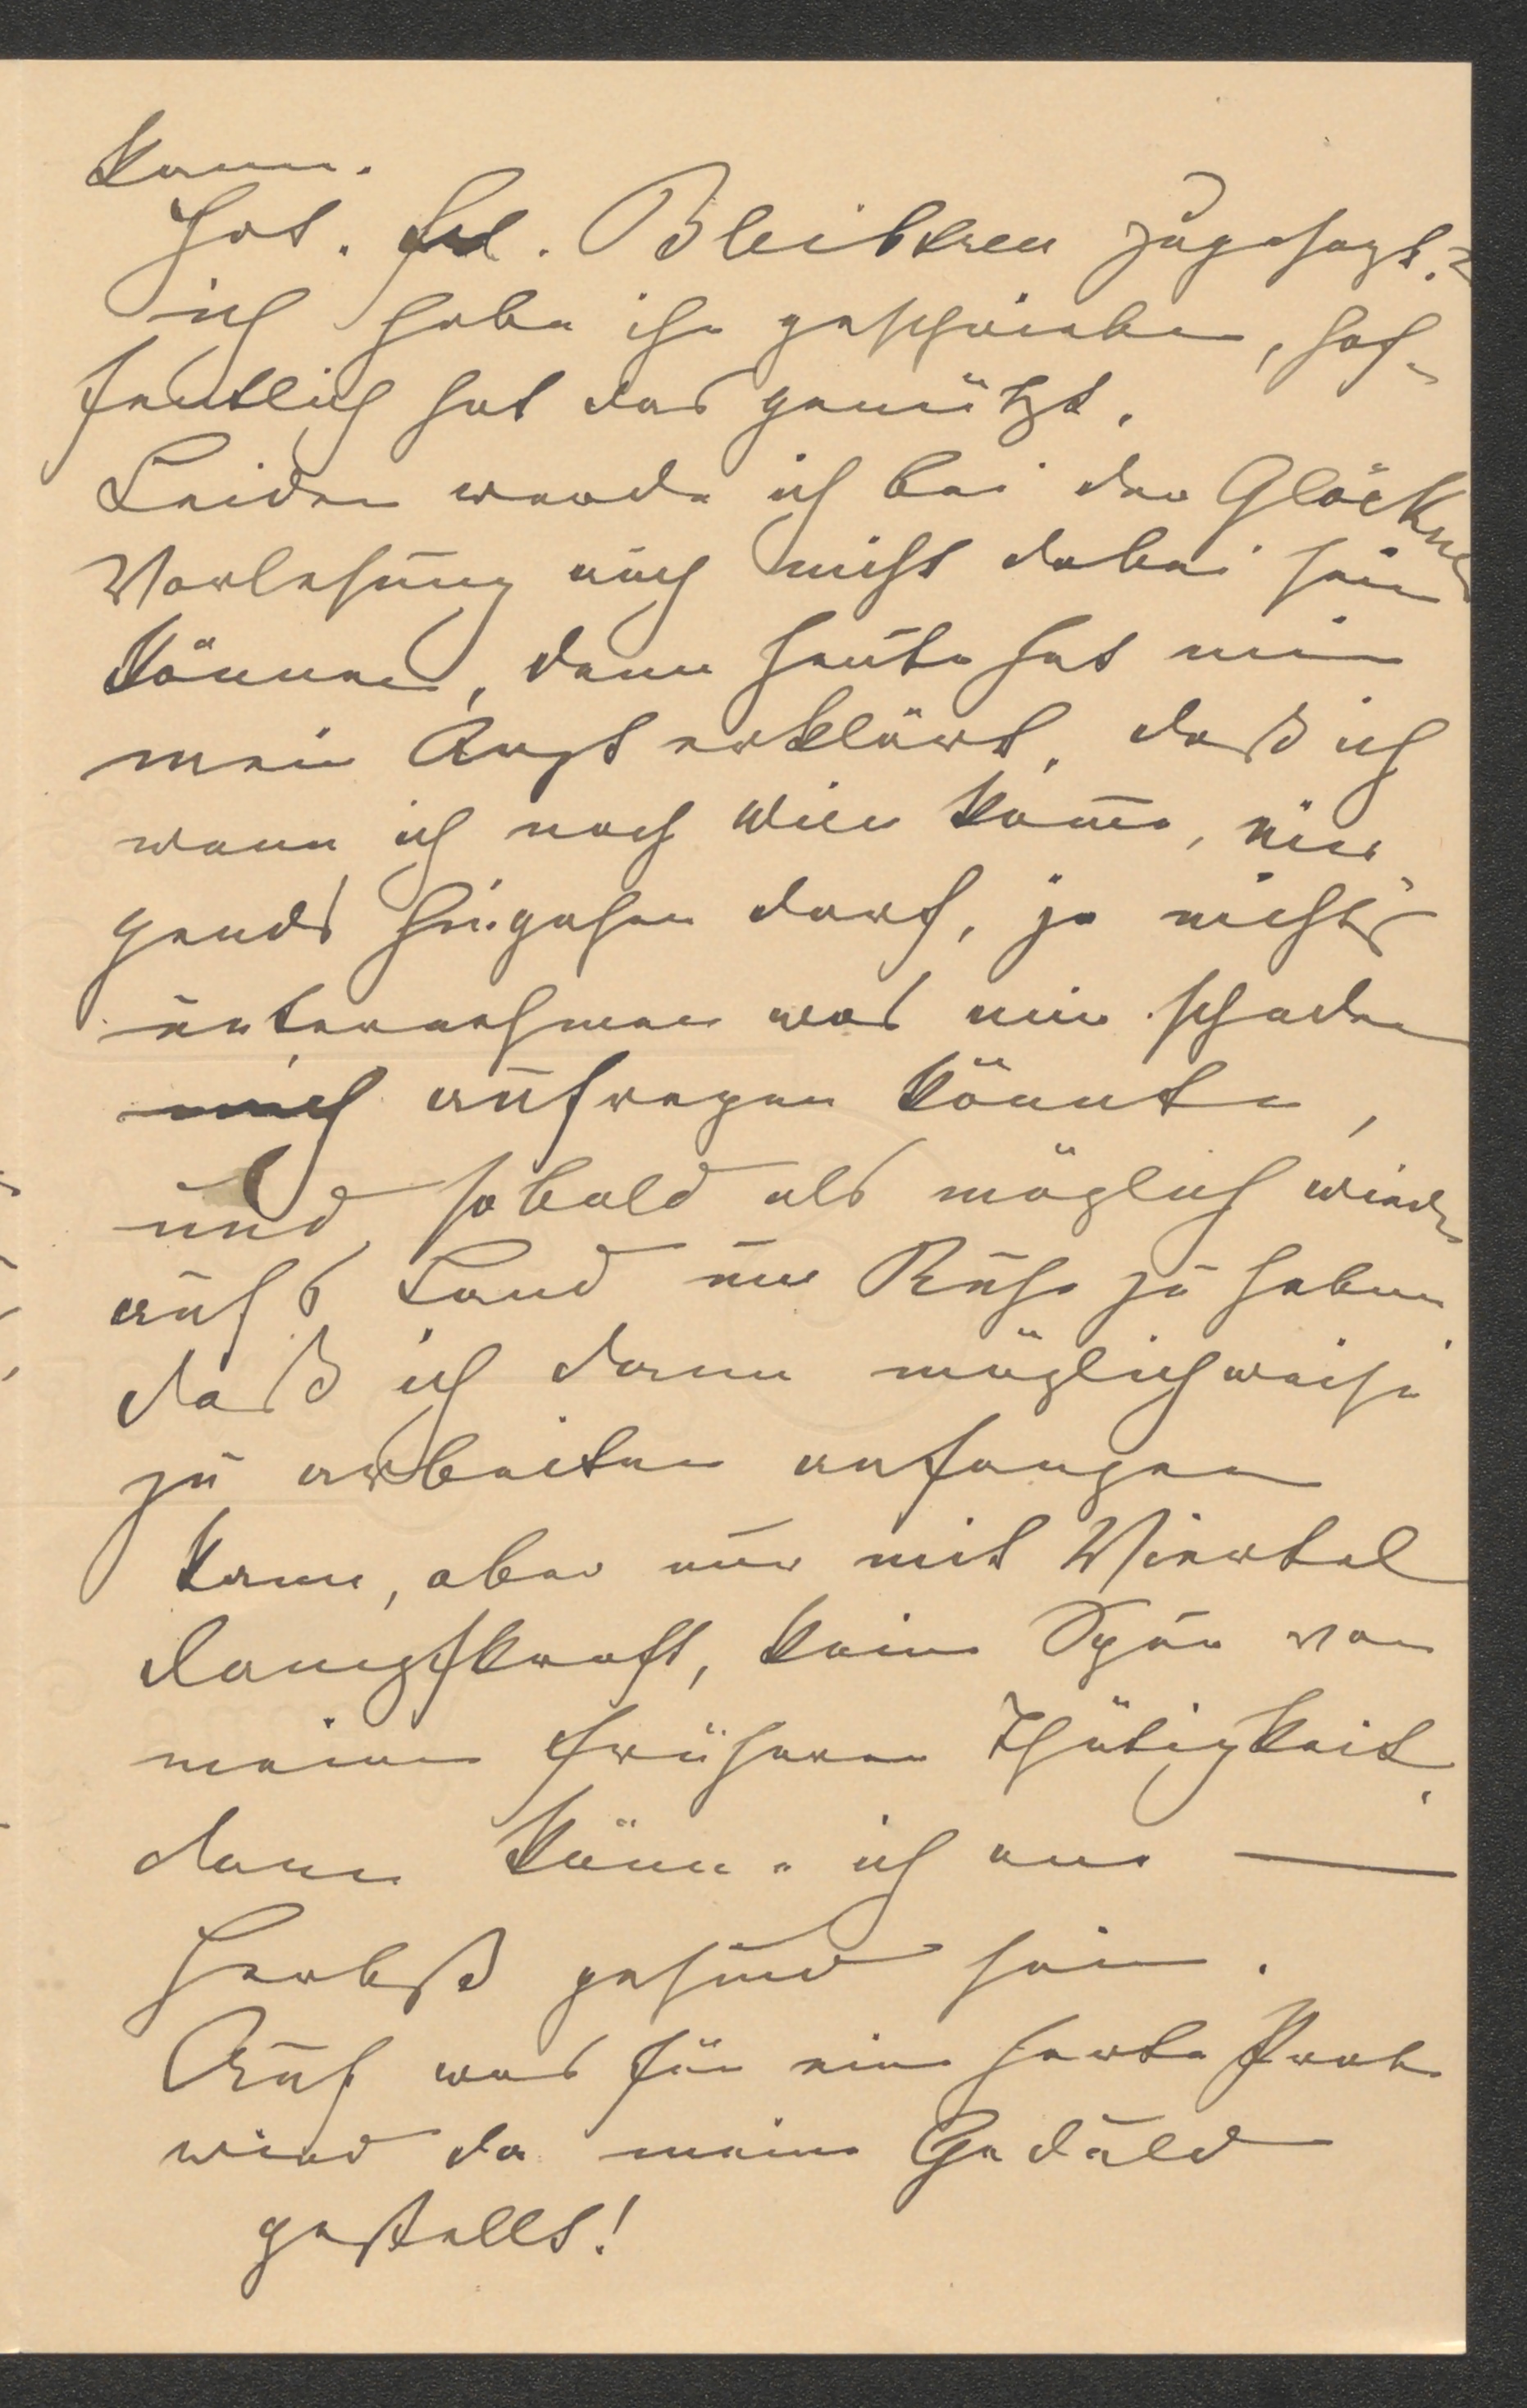 kann.
Hat. Frl. Bleibtreu zugesagt?
ich habe ihr geschrieben, hof-
fentlich hat das genützt.
Leider werde ich bei der Glöckner
Vorlesung auch nicht dabei sein
können, denn heute hat mir
mein Arzt erklärt, daß ich
wenn ich nach Wien kom̄e, nir
gends hingehen darf, ja nichts
unternehmen was mir schaden
mich aufregen könnte,
und sobald als möglich wieder
aufs Land um Ruhe zu haben
daß ich dann möglichweise
zu arbeiten anfangen
kann, aber nur mit Viertel
dampfkraft, keine Spur von
meiner früheren Thätigkeit,
dann könne ich am —
Herbst gesund sein.
Auf was für eine harte Probe
wird da meine Geduld
gestellt!